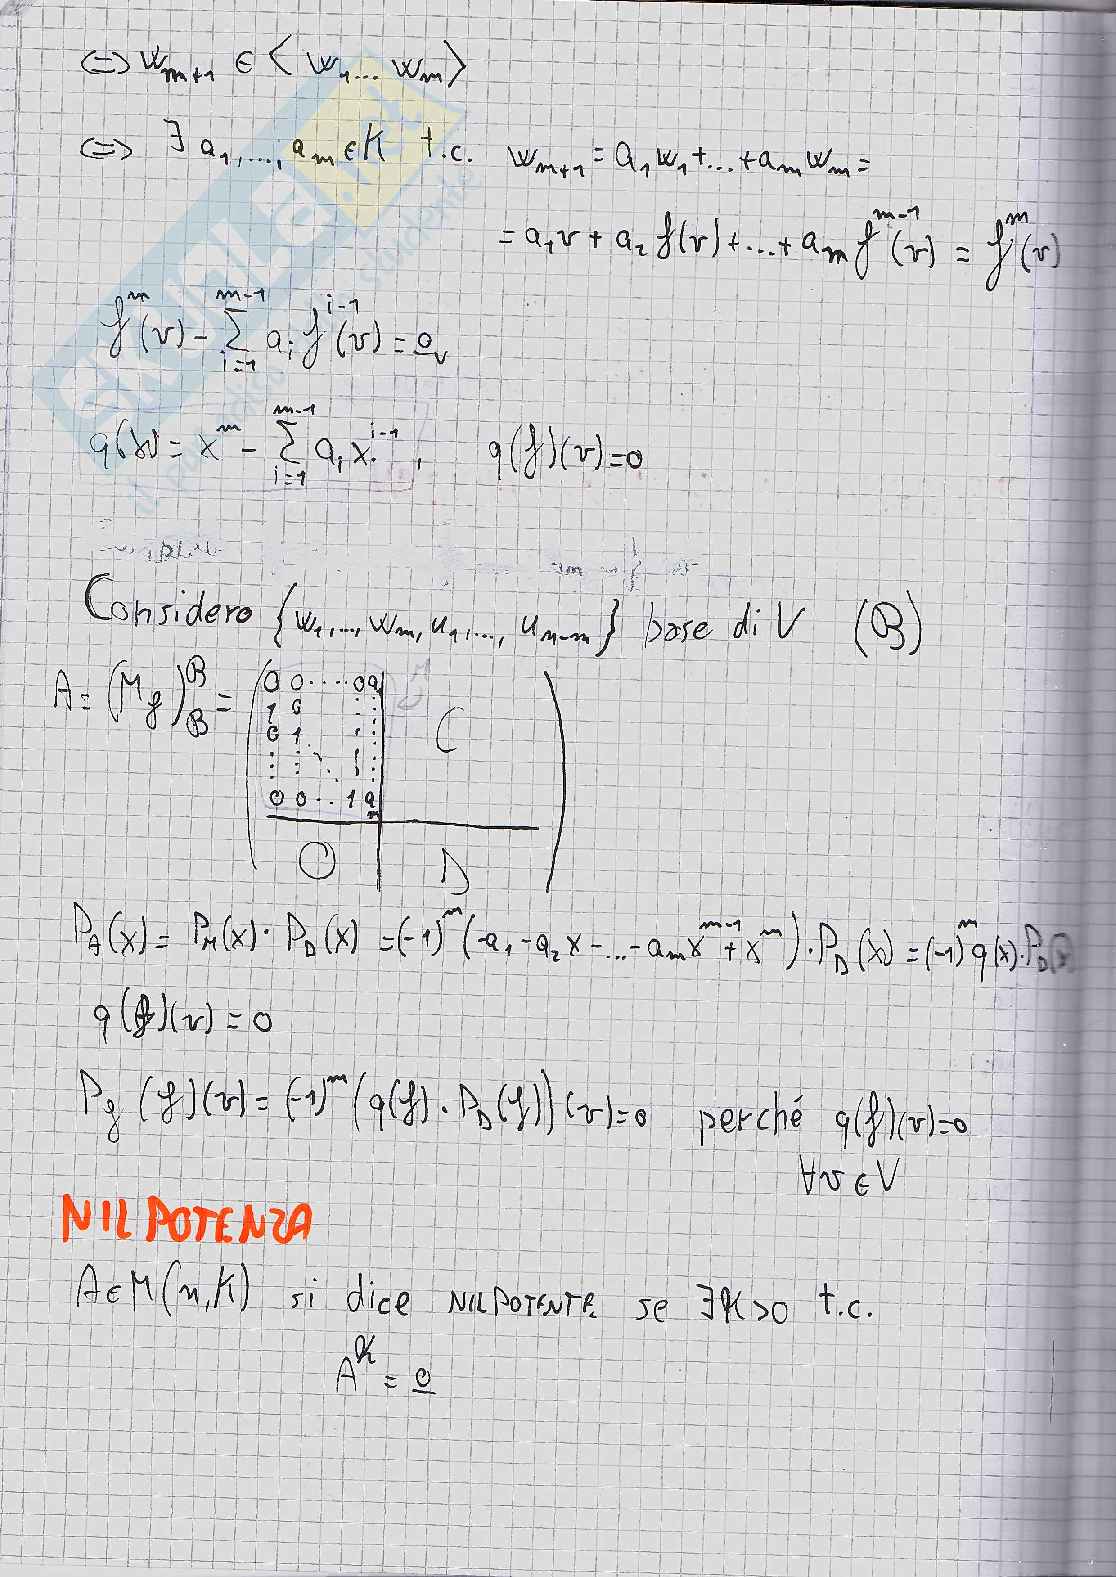 ⇔ w_{m+1} ∈ < w_1 ... w_m >
⇔ ∃ a_1, ..., a_m ∈ K t.c. w_{m+1} = a_1 w_1 + ... + a_m w_m =
= a_1 v + a_2 f(v) + ... + a_m f^{m-1}(v) = f^m(v)
f^m(v) - ∑_{i=1}^{m-1} a_i f^{i-1}(v) = 0_V
q(x) = x^m - ∑_{i=1}^{m-1} a_i x^{i-1}, q(f)(v) = 0
Considero {w_1, ..., w_m, u_1, ..., u_{n-m}} base di V (B)
A = (M_f)_B^B =
0 0 .... 0 a_1
1 0 : :
0 1 : : C
: : ⋱ : :
0 0 .. 1 a_m
O D
P_A(x) = P_M(x) · P_D(x) = (-1)^m (-a_1 - a_2 x - ... - a_m x^{m-1} + x^m) · P_D(x) = (-1)^m q(x) · P_D(x)
q(f)(v) = 0
P_f(f)(v) = (-1)^m (q(f) · P_D(f))(v) = 0 perché q(f)(v) = 0
∀v ∈ V
NILPOTENZA
A ∈ M(n, K) si dice NILPOTENTE se ∃ k > 0 t.c.
A^k = 0
SKUOLA.net